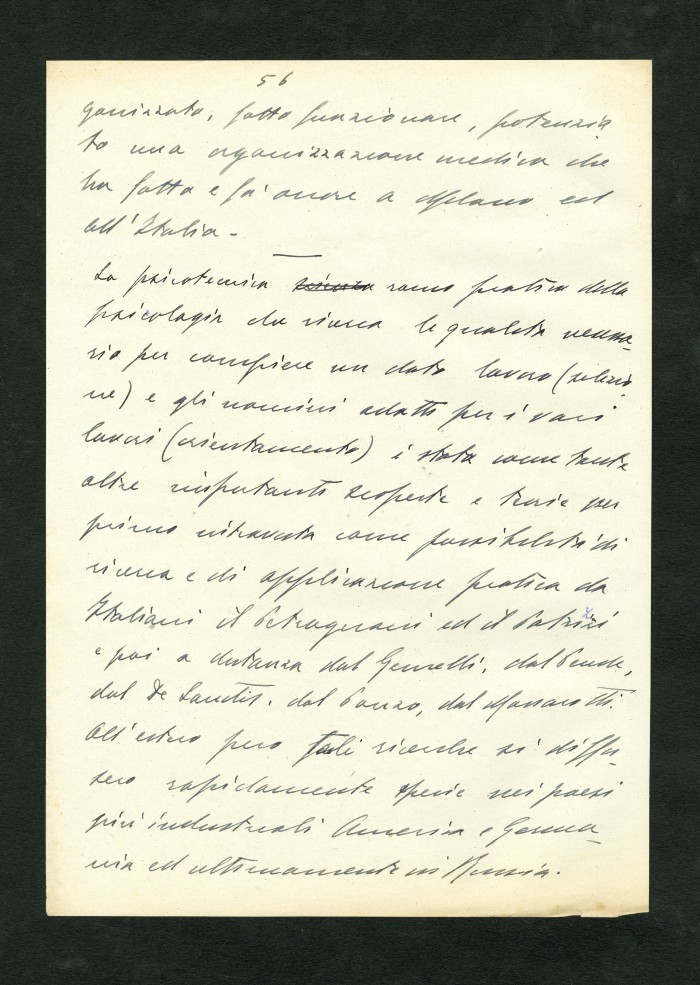 56
ganizzato, fatto funzionare, potenzia
to una organizzazione medica che
ha fatto e fa' onore a Milano ed
all'Italia -
La psicotecnica scienza ramo pratico della
psicologia che ricerca le qualità necessa-
rie per compiere un dato lavoro (selezio
ne) e gli uomini adatti per i vari
lavori (orientamento) è stata come tante
altre importanti scoperte e teorie per
primo intravista come possibilità di
ricerca e di applicazione pratica da
Italiani il Petragnani ed il Patrizi
e poi a distanza dal Gemelli, dal Pende,
dal De Sanctis, dal Ponzo, dal
All'estero pero tali ricerche si diffu-
sero rapidamente specie nei paesi
più industriali America e Germa-
nia ed ultimamente in Russia.